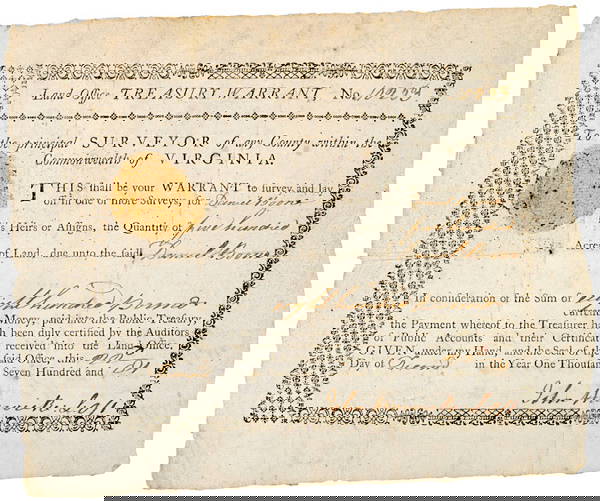 Land Office TREASURY WARRANT, No.
To the principal SURVEYOR of any County within the
Commonwealth of VIRGINIA
THIS shall be your WARRANT to survey and lay
off in one or more Surveys, for Daniel Boone
Heirs or Assigns, the Quantity of five hundred
Acres of Land, due unto the said Daniel Boone
In consideration of the Sum of eight hundred Pounds
current Money, paid into the Public Treasury,
the Payment whereof to the Treasurer hath
been duly certified by the Auditors
of Public Accounts and their Certificate
received into the Land Office,
GIVEN under my Hand, and the Seal of the
said Office, this 22 Day of in the Year One Thousand
Seven Hundred and